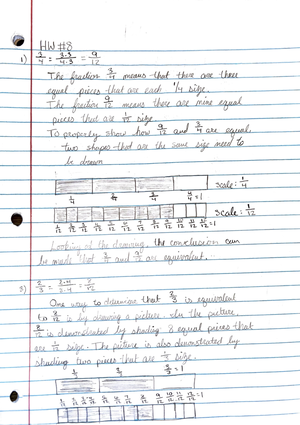 HW #8
1) 3/4 = 3·3/4·3 = 9/12
The fraction 3/4 means that there are three
equal pieces that are each 1/4 size.
The fraction 9/12 means there are nine equal
pieces that are 1/12 size.
To properly show how 9/12 and 3/4 are equal,
two shapes that are the same size need to
be drawn
1/4 2/4 3/4 4/4 = 1 scale: 1/4
1/12 2/12 3/12 4/12 5/12 6/12 7/12 8/12 9/12 10/12 11/12 12/12 = 1 scale: 1/12
Looking at the drawing, the conclusion can
be made that 3/4 and 9/12 are equivalent.
3) 2/3 =
One way to determine that 2/3 is equivalent
to 8/12 is by drawing a picture. In the picture,
8/12 is demonstrated by shading 8 equal pieces that
are 1/12 size. The picture is also demonstrated by
shading two pieces that are 1/3 size.
1/3 2/3 3/3 = 1